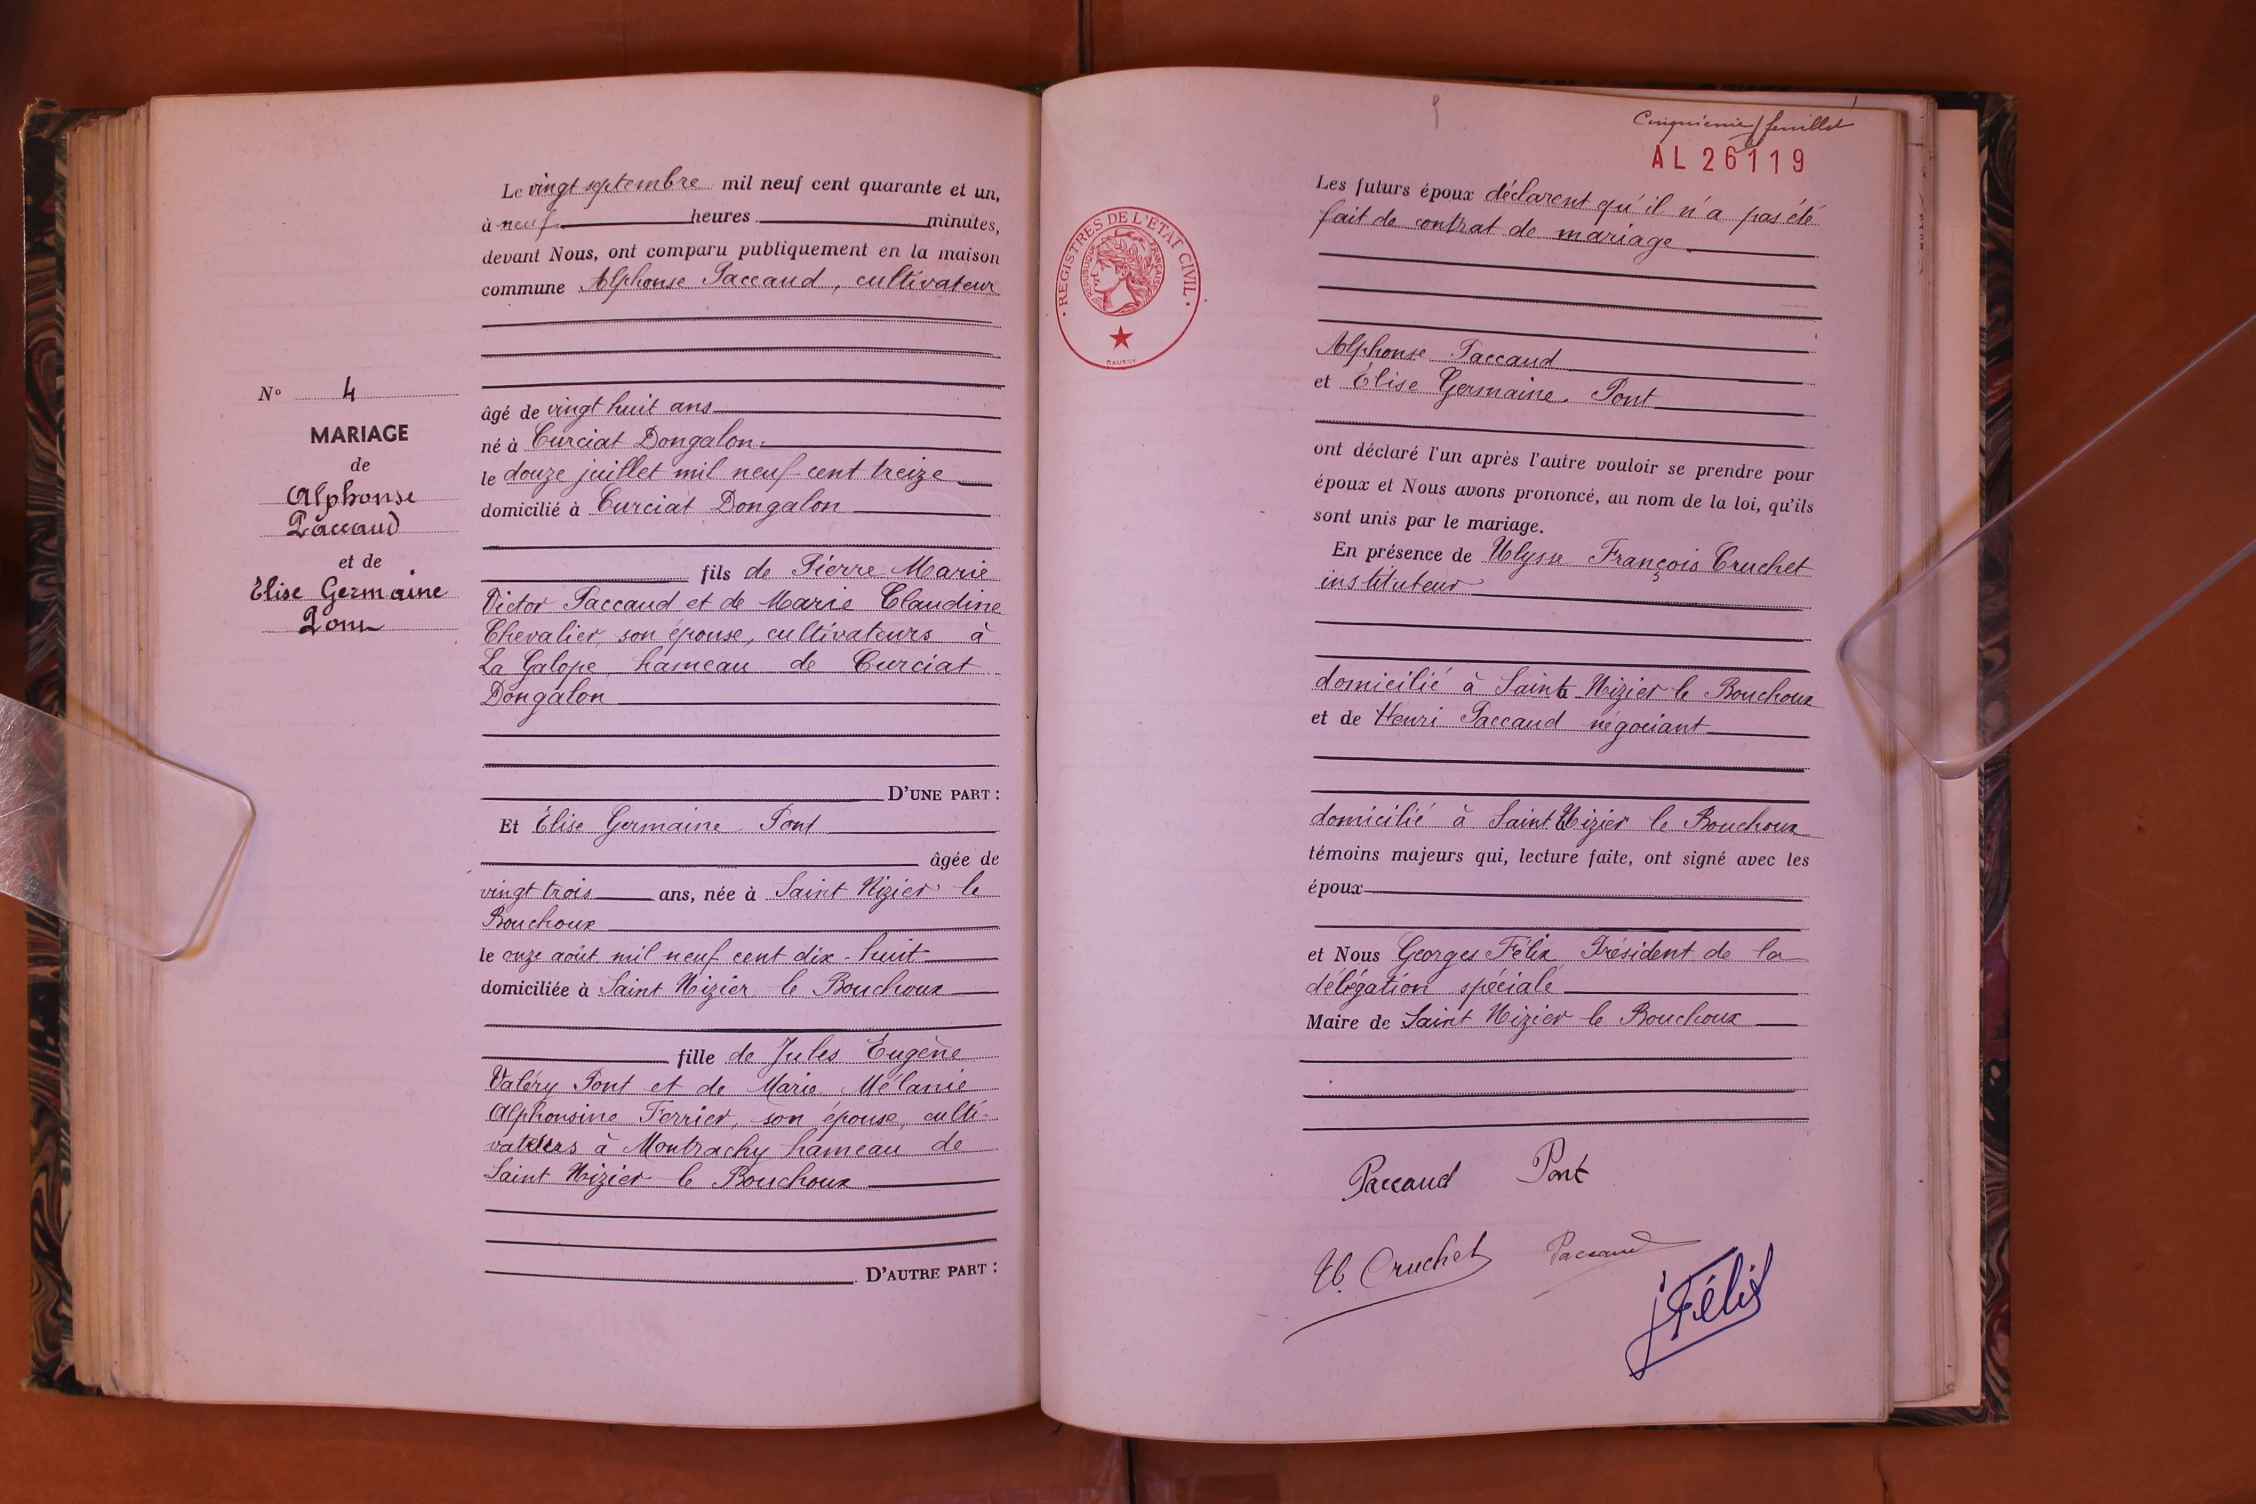 Le vingt septembre mil neuf cent quarante et un,
à neuf heures minutes,
devant Nous, ont comparu publiquement en la maison
commune Alphonse Paccaud, cultivateur
âgé de vingt huit ans
né à Curciat Dongalon
le douze juillet mil neuf cent treize
domicilié à Curciat Dongalon
fils de Pierre Marie
Victor Paccaud et de Marie Claudine
Chevalier, son épouse, cultivateurs à
La Galope hameau de Curciat
Dongalon
D'UNE PART :
Et Elise Germaine Pont
âgée de
vingt trois ans, née à Saint Nizier le
Bouchoux
le onze août mil neuf cent dix-huit
domiciliée à Saint Nizier le Bouchoux
fille de Jules Eugène
Valéry Pont et de Marie Mélanie
Alphonsine Ferrier, son épouse, culti-
vateurs à Montrachy hameau de
Saint Nizier le Bouchoux
D'AUTRE PART :
N° 4
MARIAGE
de
Alphonse
Paccaud
et de
Elise Germaine
Pont
Cinquième feuillet
AL 26119
REGISTRES DE L'ETAT CIVIL
REPUBLIQUE FRANCAISE
Les futurs époux déclarent qu'il n'a pas été
fait de contrat de mariage
Alphonse Paccaud
et Élise Germaine Pont
ont déclaré l'un après l'autre vouloir se prendre pour
époux et Nous avons prononcé, au nom de la loi, qu'ils
sont unis par le mariage.
En présence de Ulysse François Cruchet
instituteur
domicilié à Saint Nizier le Bouchoux
et de Henri Paccaud négociant
domicilié à Saint Nizier le Bouchoux
témoins majeurs qui, lecture faite, ont signé avec les
époux
et Nous Georges Félix Président de la
délégation spéciale
Maire de Saint Nizier le Bouchoux
Paccaud Pont
U. Cruchet Paccaud
Félix